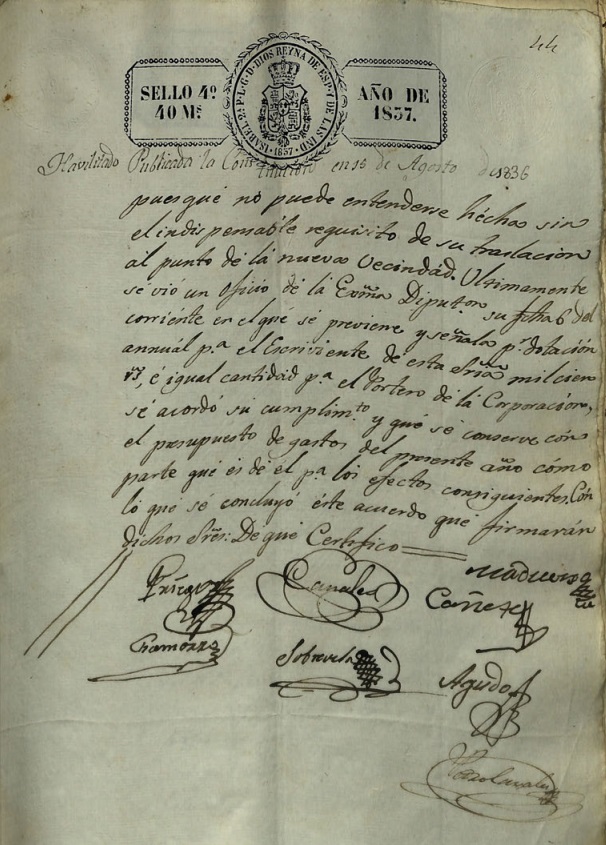 44
SELLO 4º
40 Ms
ISABEL 2ª P.L.G.D. DIOS REYNA DE ESP. Y DE LAS IND.
1837
AÑO DE
1837.
Havilitado Publicada la Constitucion en 15 de Agosto de 1836
puesque no puede entenderse hécha sin
el indispensable requisito de su traslacion
al punto de lá nueva Vecindad. Ultimamente
sé vió un Oficio dé la Exma Diputon su fcha 6 del
corriente en el qué sé previene y señala pr dotación
annuál pa el Escriviente de esta Sria mil cien
rs, é igual cantidad pa el Portero de lá Corporación,
sé acordó su cumplimto y qué sé conserve con
el presupuesto de gastos del presente año cómo
parte qué és dé él pa los efectos consiguientes. Con
ló que sé concluyó éste acuerdo qué firmarán
dichos Sres: De qué Certifico
Canales
Cañete
Chamorro
Sobrevela
Agudo